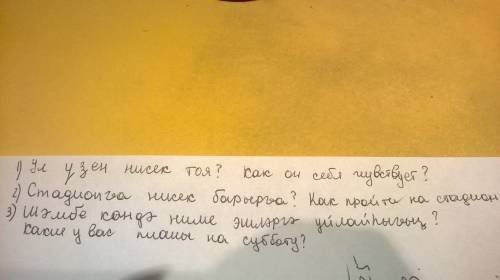 1) Ул үзен нисек тоя? Как он себя чувствует?
2) Стадионға нисек барырға? Как пройти на стадион
3) Шәмбе көндә ниме эшләргә уйлайһығыҙ?
Какие у вас планы на субботу?